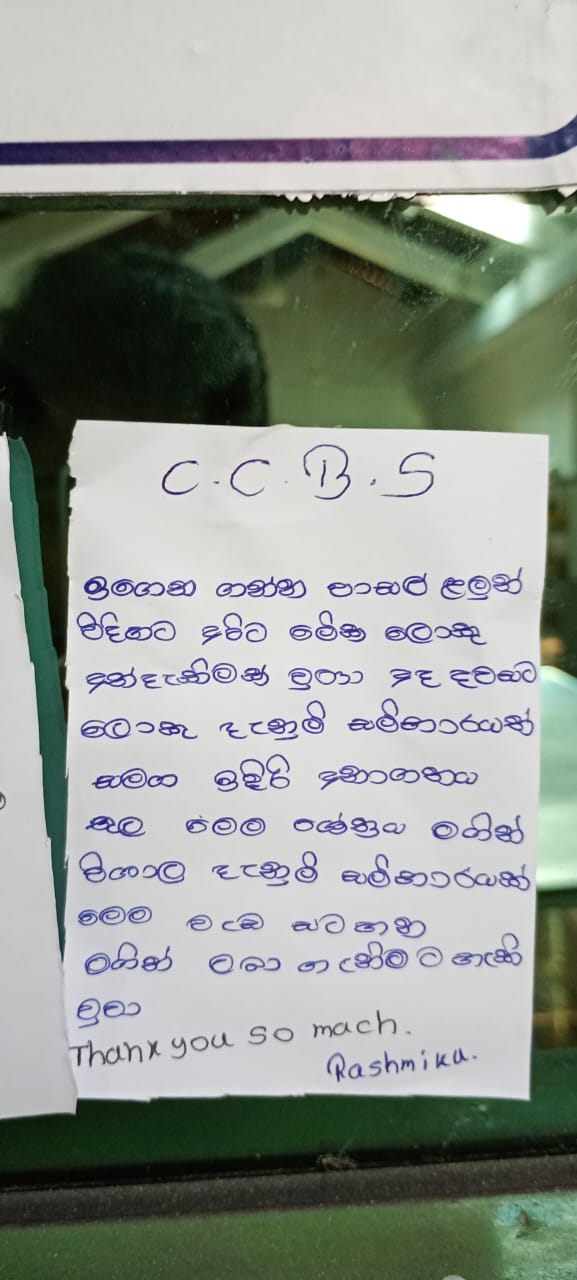 C.C.B.S
ඉගෙන ගන්න පාසල් ළමුන්
විදිහට අපිට මේක ලොකු
අත්දැකීමක් වුණා අද දවසට
ලොකු දැනුම් සම්භාරයක්
සමග ඉදිරි අනාගතය
තුල මෙම ක්ෂේත්‍රය මගින්
විශාල දැනුම් සම්භාරයක්
මෙම වැඩ සටහන
මගින් ලබා ගැනීමට හැකි
වුනා
Thanx you so mach.
Rashmika.